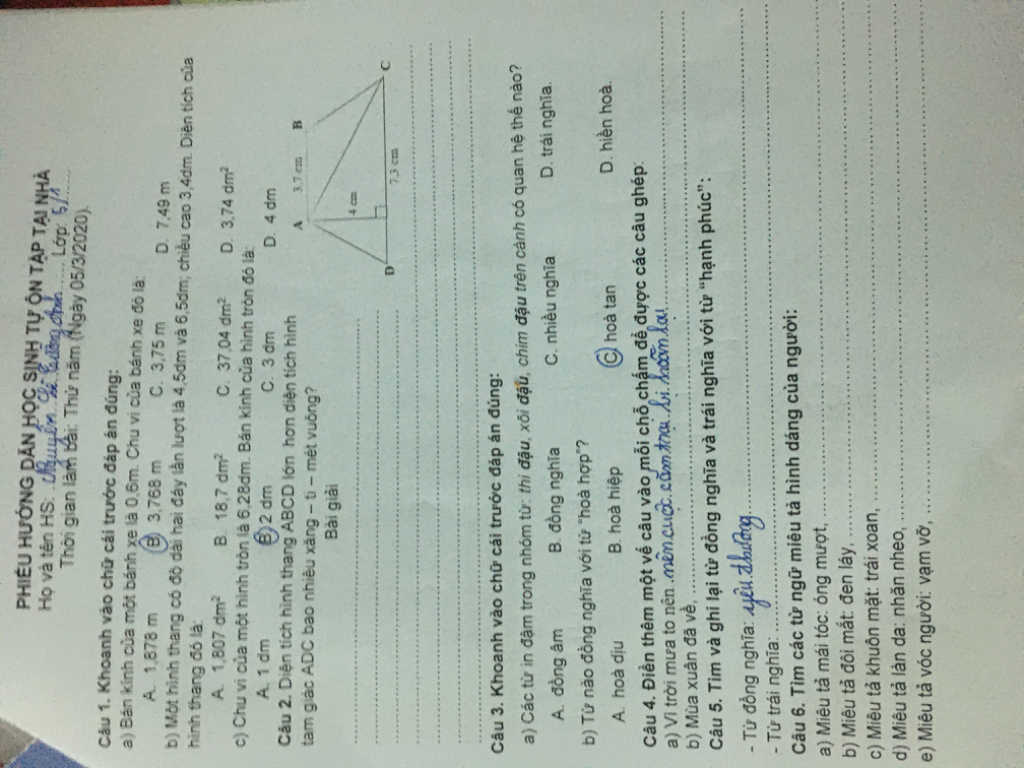 PHIẾU HƯỚNG DẪN HỌC SINH TỰ ÔN TẬP TẠI NHÀ
Họ và tên HS: Nguyễn Lê Lớp: 5/1
Thời gian làm bài: Thứ năm (Ngày 05/3/2020).
Câu 1. Khoanh vào chữ cái trước đáp án đúng:
a) Bán kính của một bánh xe là 0,6m. Chu vi của bánh xe đó là:
A. 1,878 m B. 3,768 m C. 3,75 m D. 7,49 m
b) Một hình thang có độ dài hai đáy lần lượt là 4,5dm và 6,5dm; chiều cao 3,4dm. Diện tích của
hình thang đó là:
A. 1,807 dm² B. 18,7 dm² C. 37,04 dm² D. 3,74 dm²
c) Chu vi của một hình tròn là 6,28dm. Bán kính của hình tròn đó là:
A. 1 dm B. 2 dm C. 3 dm D. 4 dm
Câu 2. Diện tích hình thang ABCD lớn hơn diện tích hình
tam giác ADC bao nhiêu xăng – ti – mét vuông?
Bài giải
A 3,7 cm B
4 cm
D 7,3 cm C
Câu 3. Khoanh vào chữ cái trước đáp án đúng:
a) Các từ in đậm trong nhóm từ: thi đậu, xôi đậu, chim đậu trên cành có quan hệ thế nào?
A. đồng âm B. đồng nghĩa C. nhiều nghĩa D. trái nghĩa.
b) Từ nào đồng nghĩa với từ "hoà hợp"?
A. hoà dịu B. hoà hiệp C. hoà tan D. hiền hoà.
Câu 4. Điền thêm một vế câu vào mỗi chỗ chấm để được các câu ghép:
a) Vì trời mưa to nên nên cuộc cắm trại bị hoãn lại
b) Mùa xuân đã về,
Câu 5. Tìm và ghi lại từ đồng nghĩa và trái nghĩa với từ "hạnh phúc":
- Từ đồng nghĩa: yêu thương
- Từ trái nghĩa:
Câu 6. Tìm các từ ngữ miêu tả hình dáng của người:
a) Miêu tả mái tóc: óng mượt,
b) Miêu tả đôi mắt: đen láy,
c) Miêu tả khuôn mặt: trái xoan,
d) Miêu tả làn da: nhăn nheo,
e) Miêu tả vóc người: vạm vỡ,